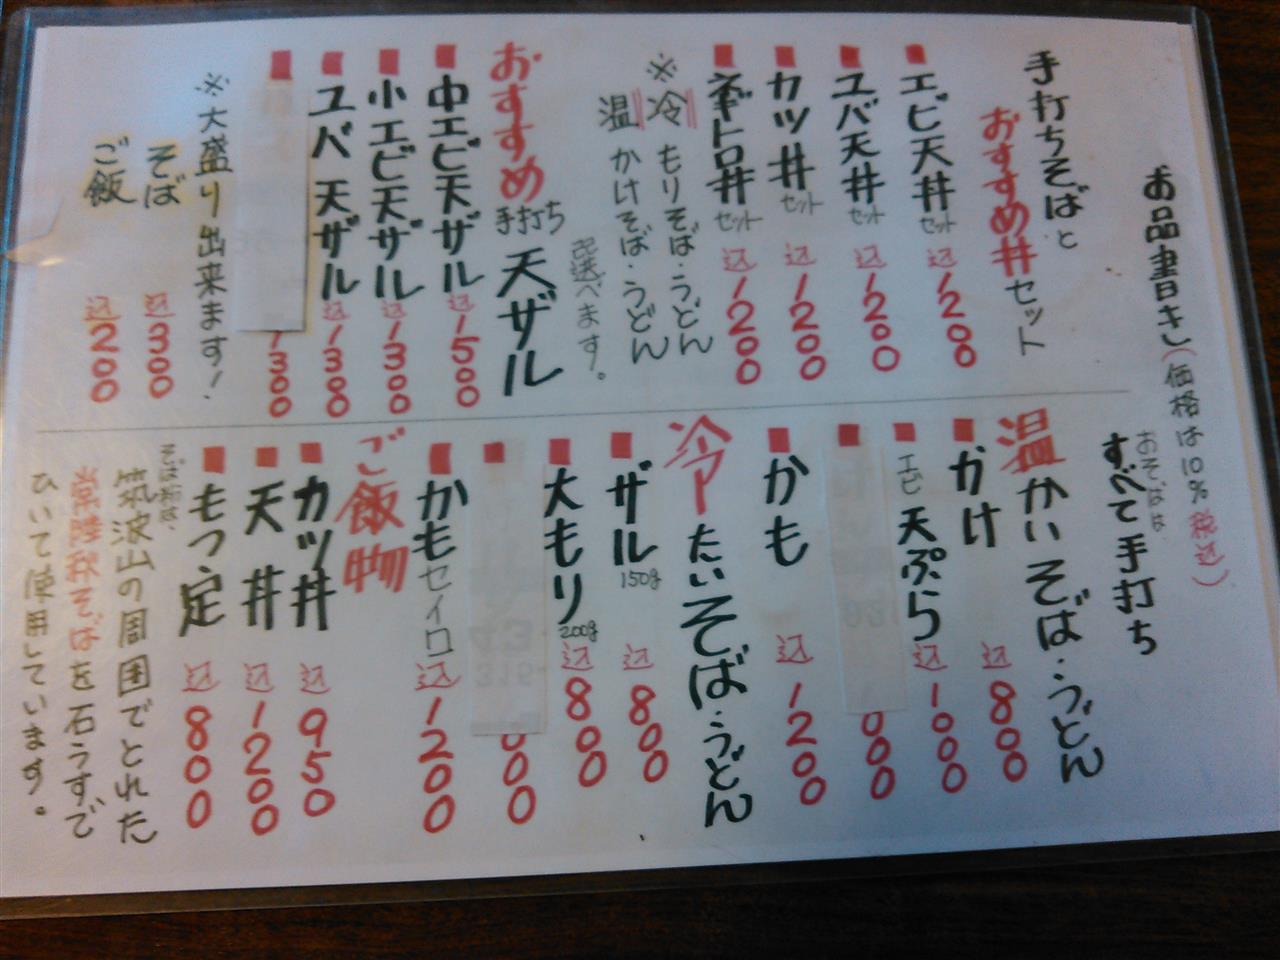 お品書き(価格は10%税込)
手打ちそばと
おすすめ丼セット
エビ天丼セット 込1200
ユバ天丼セット 込1200
カツ丼セット 込1200
ネギトロ丼セット 込1200
※冷 もりそば・うどん
温 かけそば・うどん
選べます。
おすすめ 手打ち 天ザル
中エビ天ザル 込1500
小エビ天ザル 込1300
ユバ天ザル 込1300
1300
※大盛り出来ます!
そば 込300
ご飯 込200
おそばは
すべて手打ち
温かいそば・うどん
かけ 込800
エビ天ぷら 込1000
000
かも 込1200
冷たいそば・うどん
ザル 150g 込800
大もり 200g 込800
00
かもセイロ 込1200
ご飯物
カツ丼 込950
天丼 込1200
もつ定 込800
そば粉は、
筑波山の周囲でとれた
常陸秋そばを石うすで
ひいて使用しています。